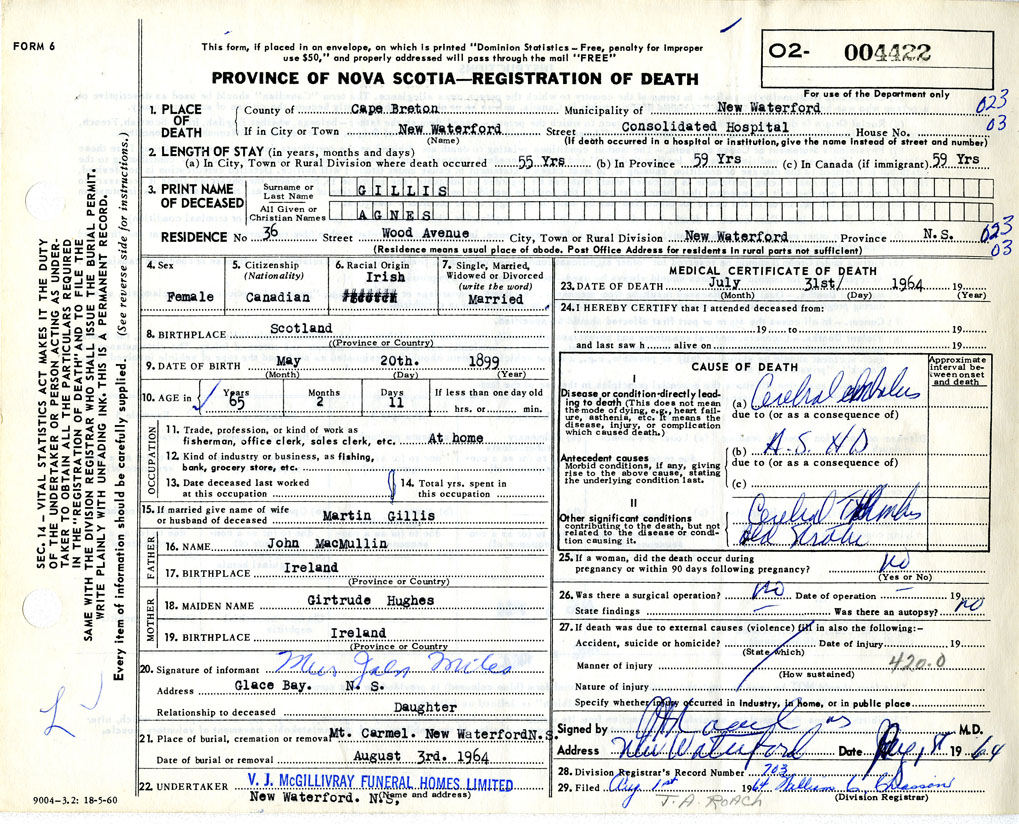 FORM 6
This form, if placed in an envelope, on which is printed "Dominion Statistics – Free, penalty for improper
use $50," and properly addressed will pass through the mail "FREE"
PROVINCE OF NOVA SCOTIA—REGISTRATION OF DEATH
O2- 004422
For use of the Department only
023
03
1. PLACE OF DEATH { County of Cape Breton Municipality of New Waterford
If in City or Town New Waterford Street Consolidated Hospital House No.
(Name) (If death occurred in a hospital or institution, give the name instead of street and number)
2. LENGTH OF STAY (in years, months and days)
(a) In City, Town or Rural Division where death occurred 55 Yrs (b) In Province 59 Yrs (c) In Canada (if immigrant) 59 Yrs
3. PRINT NAME OF DECEASED
Surname or Last Name GILLIS
All Given or Christian Names AGNES
RESIDENCE No 36 Street Wood Avenue City, Town or Rural Division New Waterford Province N.S.
023
03
(Residence means usual place of abode. Post Office Address for residents in rural parts not sufficient)
4. Sex Female
5. Citizenship (Nationality) Canadian
6. Racial Origin Irish
7. Single, Married, Widowed or Divorced (write the word) Married
8. BIRTHPLACE Scotland
((Province or Country)
9. DATE OF BIRTH May 20th. 1899
(Month) (Day) (Year)
10. AGE in { Years 65 Months 2 Days 11 If less than one day old
hrs. or min.
OCCUPATION
11. Trade, profession, or kind of work as
fisherman, office clerk, sales clerk, etc. At home
12. Kind of industry or business, as fishing,
bank, grocery store, etc.
13. Date deceased last worked
at this occupation
14. Total yrs. spent in
this occupation
15. If married give name of wife
or husband of deceased Martin Gillis
FATHER
16. NAME John MacMullin
17. BIRTHPLACE Ireland
(Province or Country)
MOTHER
18. MAIDEN NAME Girtrude Hughes
19. BIRTHPLACE Ireland
(Province or Country
20. Signature of informant Mrs John Miles
Address Glace Bay. N. S.
Relationship to deceased Daughter
21. Place of burial, cremation or removal Mt. Carmel. New Waterford N.S.
Date of burial or removal August 3rd. 1964
22. UNDERTAKER V. J. McGILLIVRAY FUNERAL HOMES LIMITED
New Waterford. N.S, (Name and address)
9004-3.2: 18-5-60
MEDICAL CERTIFICATE OF DEATH
23. DATE OF DEATH July 31st/ 1964 19
(Month) (Day) (Year)
24. I HEREBY CERTIFY that I attended deceased from:
19 to 19
and last saw h alive on 19
CAUSE OF DEATH
Approximate interval between onset and death
I
Disease or condition directly leading to death (This does not mean the mode of dying, e.g., heart failure, asthenia, etc. It means the disease, injury, or complication which caused death.)
(a) Cerebral embolus
due to (or as a consequence of)
(b) A.S. H D
Antecedent causes
Morbid conditions, if any, giving rise to the above cause, stating the underlying condition last.
due to (or as a consequence of)
(c)
II
Other significant conditions
contributing to the death, but not related to the disease or condition causing it.
Cerebral
old
25. If a woman, did the death occur during
pregnancy or within 90 days following pregnancy? no
(Yes or No)
26. Was there a surgical operation? no Date of operation – 19
State findings – Was there an autopsy? no
27. If death was due to external causes (violence) fill in also the following:–
Accident, suicide or homicide? Date of injury 19
(State which)
Manner of injury 420.0
(How sustained)
Nature of injury
Specify whether injury occurred in industry, in home, or in public place
Signed by M.D.
Address New Waterford Date Aug 1st 1964
28. Division Registrar's Record Number 703
29. Filed Aug 1st 1964 William C Chiasson
(Division Registrar)
J.A. ROACH
SEC. 14 – VITAL STATISTICS ACT MAKES IT THE DUTY
OF THE UNDERTAKER OR PERSON ACTING AS UNDER-
TAKER TO OBTAIN ALL THE PARTICULARS REQUIRED
IN THE "REGISTRATION OF DEATH" AND TO FILE THE
SAME WITH THE DIVISION REGISTRAR WHO SHALL ISSUE THE BURIAL PERMIT.
WRITE PLAINLY WITH UNFADING INK. THIS IS A PERMANENT RECORD.
Every item of information should be carefully supplied. (See reverse side for instructions.)